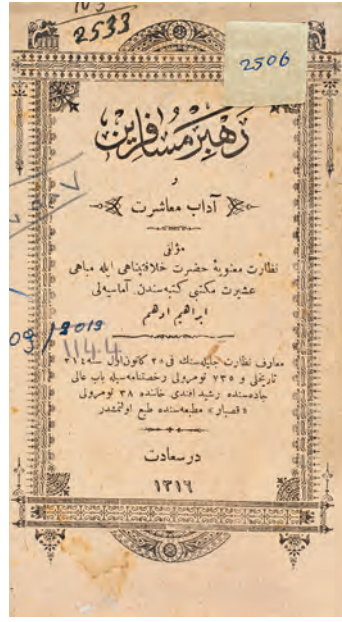 2533
2506
رهبر مسافرین
و
آداب معاشرت
مؤلفی
نظارت معنویهٔ حضرت خلافتپناهی ایله مباهی
عشیرت مکتبی کتبه سندن آماسیه لی
ابراهیم ادهم
1144
معارف نظارت جلیله سنك فی ٢٥ کانون اول سنه
تاریخلی و ٧٣٥ نومرولی رخصتنامه سیله باب عالی
جاده سنده رشید افندی خاننده ٣٨ نومرولی
« قصبار » مطبعه سنده طبع اولنمشدر
در سعادت
١٣١٦